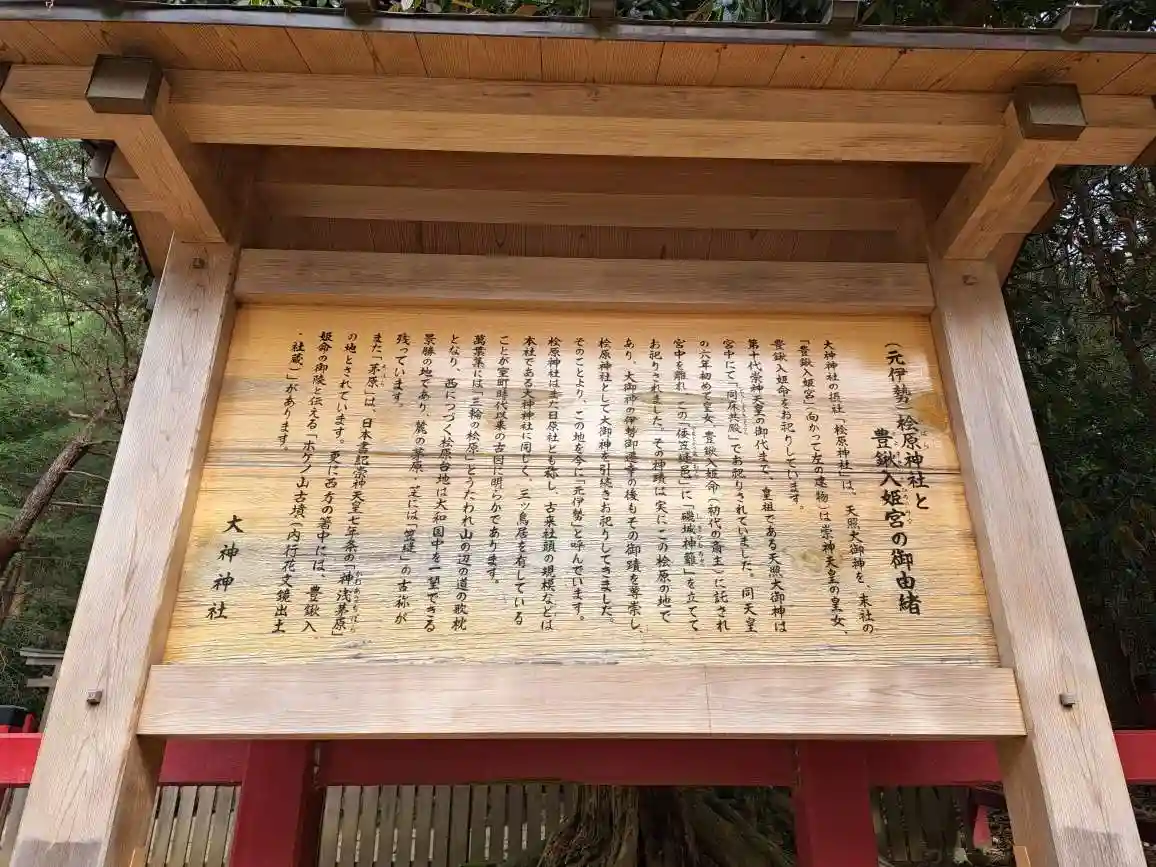 (元伊勢)桧原神社と
豊鍬入姫宮の御由緒
大神神社の摂社「桧原神社」は、天照大御神を、末社の
「豊鍬入姫宮」(向かって左の建物)は崇神天皇の皇女、
豊鍬入姫命をお祀りしています。
第十代崇神天皇の御代まで、皇祖である天照大御神は
宮中にて「同床共殿」でお祀りされていました。同天皇
の六年初めて皇女、豊鍬入姫命(初代の斎王)に託され
宮中を離れ、この「倭笠縫邑」に「磯城神籬」を立てて
お祀りされました。その神蹟は実にこの桧原の地で
あり、大御神の伊勢御遷幸の後もその御蹟を尊崇し、
桧原神社として大御神を引続きお祀りしてきました。
そのことより、この地を今に「元伊勢」と呼んでいます。
桧原神社はまた日原社とも称し、古来社頭の規模などは
本社である大神神社に同じく、三ツ鳥居を有している
ことが室町時代以来の古図に明らかであります。
萬葉集には「三輪の桧原」とうたわれ山の辺の道の歌枕
となり、西につづく桧原台地は大和国中を一望できる
景勝の地であり、麓の茅原・芝には「笠縫」の古称が
残っています。
また「茅原」は、日本書紀崇神天皇七年条の「神浅茅原」
の地とされています。更に西方の箸中には、豊鍬入
姫命の御陵と伝える「ホケノ山古墳(内行花文鏡出土
・社蔵)」があります。
大神神社